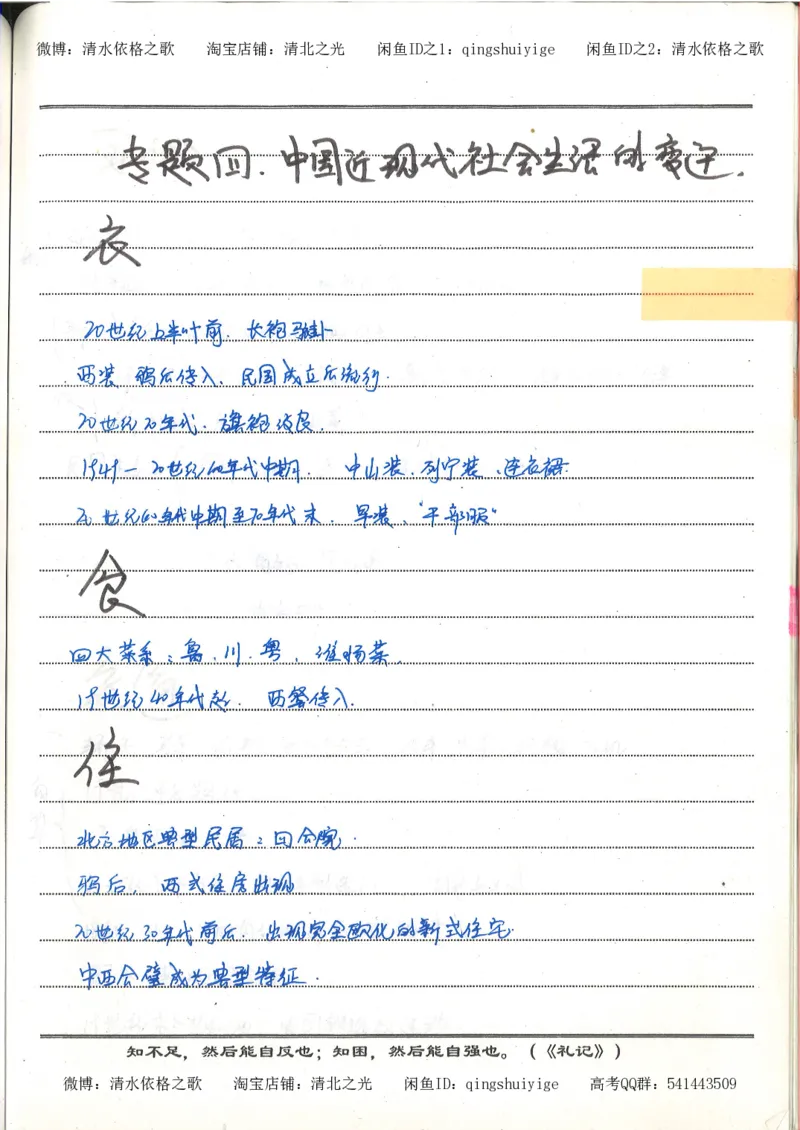 微博：清水依格之歌 淘宝店铺：清北之光 闲鱼ID之1：qingshuiyige 闲鱼ID之2：清水依格之歌
专题四.中国近现代社会生活的变迁.
衣
20世纪上半叶前.长袍马褂
西装 鸦后传入.民国成立后流行.
20世纪20年代.旗袍改良.
1949－20世纪60年代中期. 中山装.列宁装、连衣裙.
20世纪60年代中期至70年代末. 军装、“干部服”
食
四大菜系：鲁.川.粤.淮扬菜.
19世纪40年代起. 西餐传入.
住
北方地区典型民居：四合院.
鸦后.西式住房出现
20世纪30年代前后.出现完全欧化的新式住宅.
中西合璧成为典型特征.
知不足，然后能自反也；知困，然后能自强也。（《礼记》）
微博：清水依格之歌 淘宝店铺：清北之光 闲鱼ID：qingshuiyige 高考QQ群：541443509